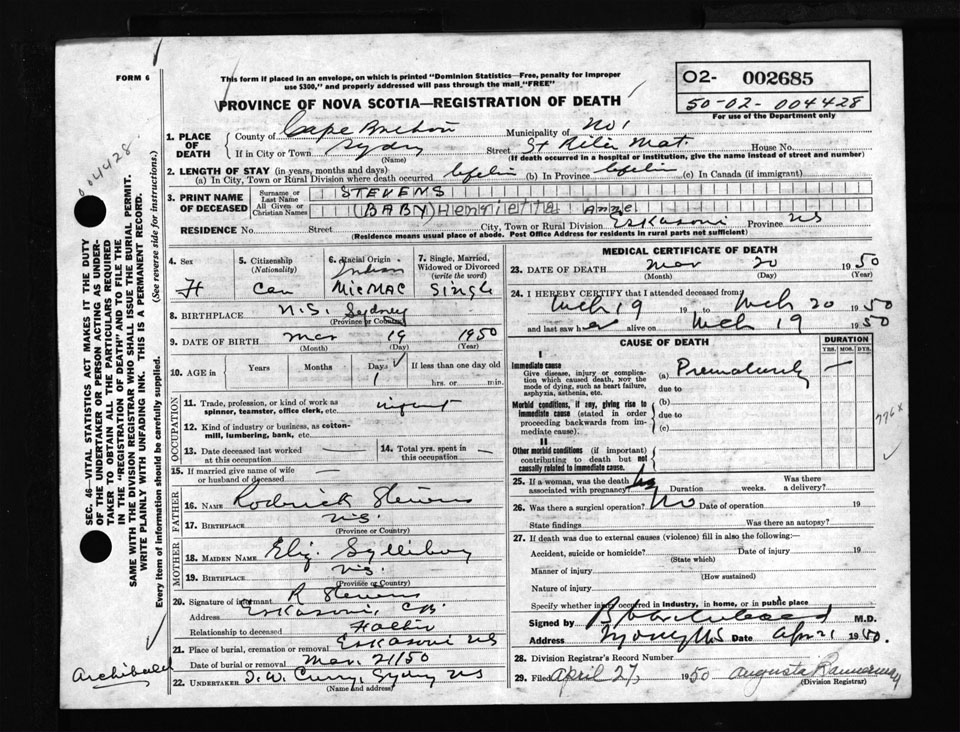 FORM 6
This form if placed in an envelope, on which is printed "Dominion Statistics—Free, penalty for improper
use $300," and properly addressed will pass through the mail "FREE"
PROVINCE OF NOVA SCOTIA—REGISTRATION OF DEATH
O2- 002685
50-02-004428
For use of the Department only
004428
SEC. 46—VITAL STATISTICS ACT MAKES IT THE DUTY
OF THE UNDERTAKER OR PERSON ACTING AS UNDER-
TAKER TO OBTAIN ALL THE PARTICULARS REQUIRED
IN THE "REGISTRATION OF DEATH" AND TO FILE THE
SAME WITH THE DIVISION REGISTRAR WHO SHALL ISSUE THE BURIAL PERMIT.
WRITE PLAINLY WITH UNFADING INK. THIS IS A PERMANENT RECORD.
Every item of information should be carefully supplied. (See reverse side for instructions.)
1. PLACE OF DEATH
County of Cape Breton Municipality of No 1
If in City or Town Sydney Street St Rita Mat. House No.
(Name) (If death occurred in a hospital or institution, give the name instead of street and number)
2. LENGTH OF STAY (in years, months and days)
(a) In City, Town or Rural Division where death occurred Lifetime (b) In Province Lifetime (c) In Canada (if immigrant)
3. PRINT NAME OF DECEASED
Surname or Last Name STEVENS
All Given or Christian Names (BABY) Henrietta Anne
RESIDENCE No. Street City, Town or Rural Division Eskasoni Province NS
(Residence means usual place of abode. Post Office Address for residents in rural parts not sufficient)
4. Sex F
5. Citizenship (Nationality) Can
6. Racial Origin Indian MICMAC
7. Single, Married, Widowed or Divorced (write the word) Single
8. BIRTHPLACE N.S. Sydney
(Province or Country)
9. DATE OF BIRTH Mar 19 1950
(Month) (Day) (Year)
10. AGE in Years Months Days 1 If less than one day old hrs. or min.
OCCUPATION
11. Trade, profession, or kind of work as spinner, teamster, office clerk, etc. infant
12. Kind of industry or business, as cotton-mill, lumbering, bank, etc.
13. Date deceased last worked at this occupation —
14. Total yrs. spent in this occupation —
15. If married give name of wife or husband of deceased
FATHER
16. NAME Roderick Stevens
17. BIRTHPLACE N.S.
(Province or Country)
MOTHER
18. MAIDEN NAME Eliz. Sylliboy
19. BIRTHPLACE N.S.
(Province or Country)
20. Signature of informant R Stevens
Address Eskasoni, C.B.
Relationship to deceased Father
21. Place of burial, cremation or removal Eskasoni NS
Date of burial or removal Mar. 21/50
Archibald
22. UNDERTAKER T. W. Curry, Sydney NS
(Name and address)
MEDICAL CERTIFICATE OF DEATH
23. DATE OF DEATH Mar 20 1950
(Month) (Day) (Year)
24. I HEREBY CERTIFY that I attended deceased from
Mch 19 19 to Mch 20 1950
and last saw her alive on Mch 19 1950
CAUSE OF DEATH
DURATION
YRS. MOS. DYS.
I
Immediate cause
Give disease, injury or complication which caused death, NOT the mode of dying, such as heart failure, asphyxia, asthenia, etc.
(a) Prematurity —
due to
Morbid conditions, if any, giving rise to immediate cause (stated in order proceeding backwards from immediate cause).
(b)
due to
(c)
776x
II
Other morbid conditions (if important) contributing to death but not causally related to immediate cause.
25. If a woman, was the death associated with pregnancy? Duration weeks. Was there a delivery?
26. Was there a surgical operation? No Date of operation 19
State findings Was there an autopsy?
27. If death was due to external causes (violence) fill in also the following:
Accident, suicide or homicide? Date of injury 19
(State which)
Manner of injury
(How sustained)
Nature of injury
Specify whether injury occurred in industry, in home, or in public place
Signed by M.D.
Address Date Apr 21 1950.
28. Division Registrar's Record Number
29. Filed April 27, 1950 Augusta
(Division Registrar)